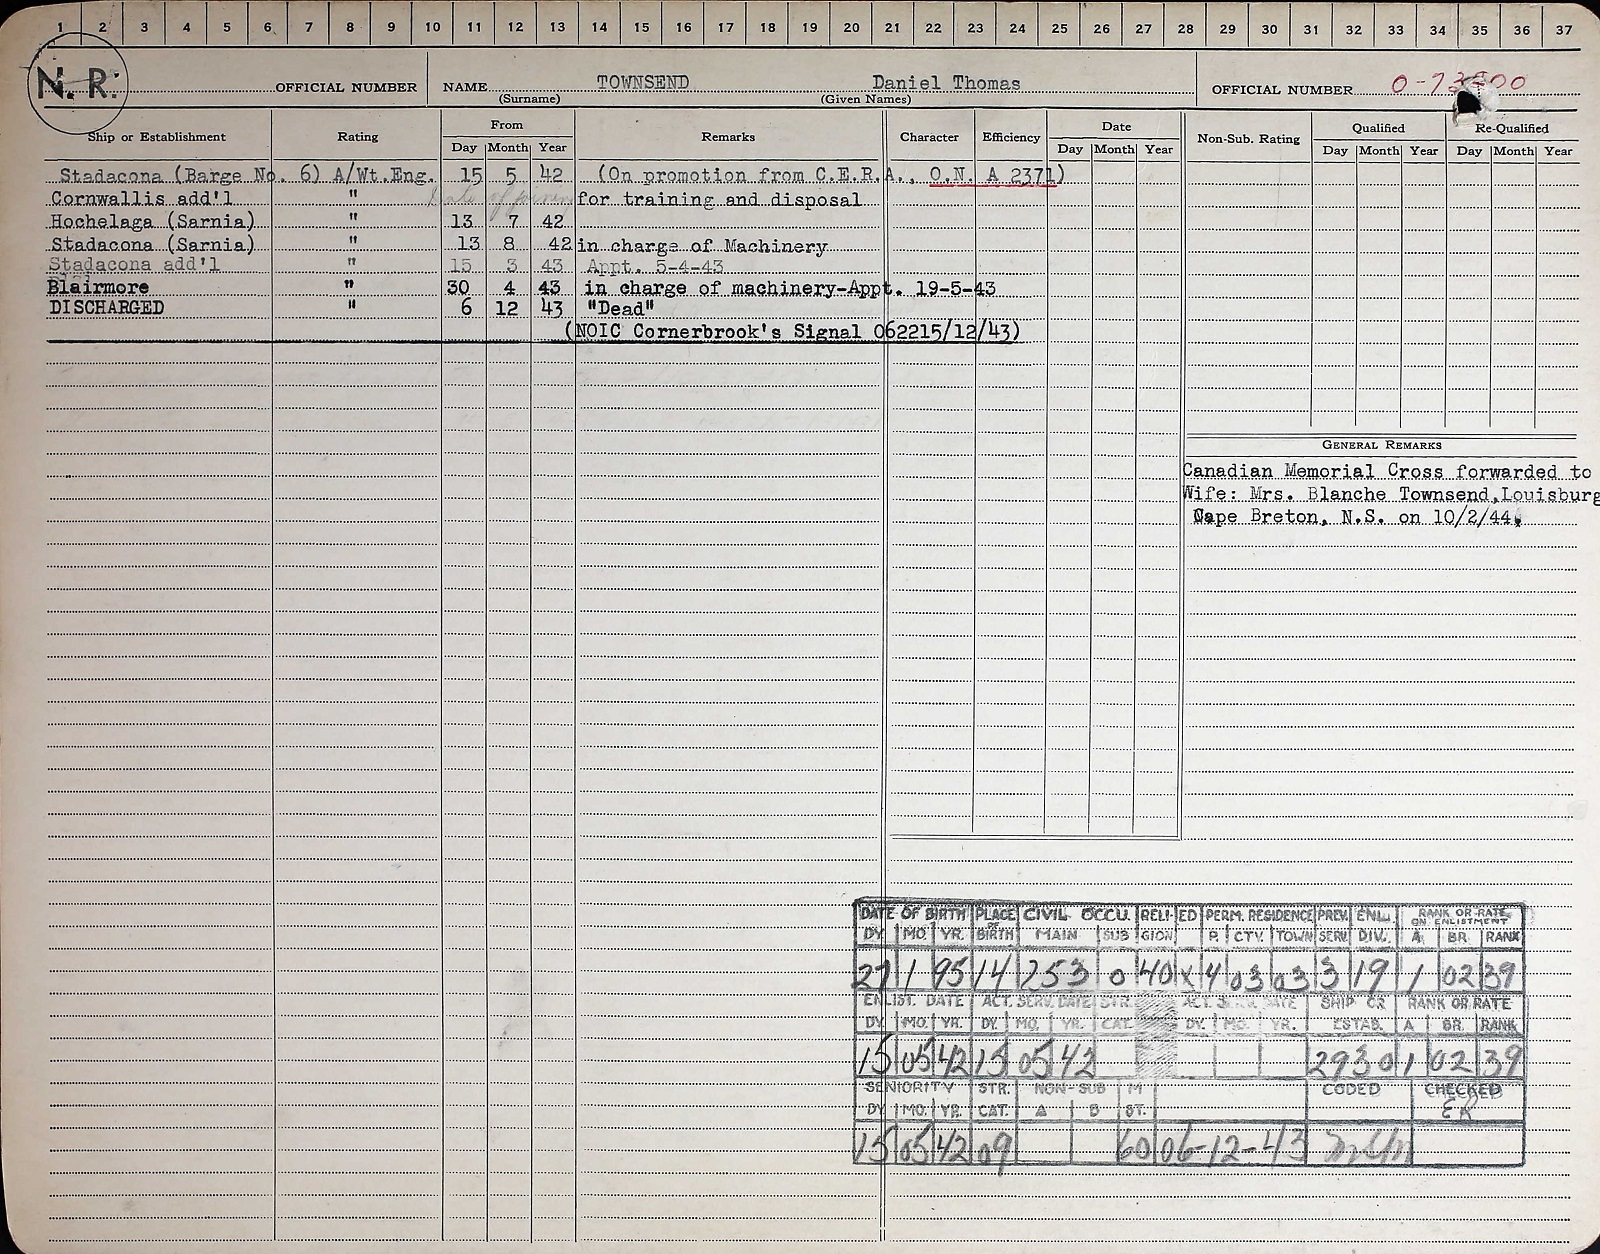 1 2 3 4 5 6 7 8 9 10 11 12 13 14 15 16 17 18 19 20 21 22 23 24 25 26 27 28 29 30 31 32 33 34 35 36 37
N. R. OFFICIAL NUMBER NAME TOWNSEND Daniel Thomas OFFICIAL NUMBER
(Surname) (Given Names)
Ship or Establishment Rating From Remarks Character Efficiency Date Non-Sub. Rating Qualified Re-Qualified
Day Month Year Day Month Year Day Month Year Day Month Year
Stadacona (Barge No. 6) A/Wt.Eng. 15 5 42 (On promotion from C.E.R.A., O.N. A 2371)
Cornwallis add'l " for training and disposal
Hochelaga (Sarnia) " 13 7 42
Stadacona (Sarnia) " 13 8 42 in charge of Machinery
Stadacona add'l " 15 3 43 Appt. 5-4-43
Blairmore " 30 4 43 in charge of machinery-Appt. 19-5-43
DISCHARGED " 6 12 43 "Dead"
(NOIC Cornerbrook's Signal 062215/12/43)
GENERAL REMARKS
Canadian Memorial Cross forwarded to
Wife: Mrs. Blanche Townsend, Louisburg
Cape Breton, N.S. on 10/2/44.
DATE OF BIRTH PLACE OF BIRTH CIVIL OCCU. RELIGION ED PERM. RESIDENCE PREV. SERV. ENL. DIV. RANK OR RATE ON ENLISTMENT
DY MO YR. MAIN SUB P. CTY. TOWN A BR. RANK
27 1 95 14 253 0 40 x 4 03 03 3 19 1 02 39
ENLIST. DATE ACT. SERV. DATE STR. ACT. SERV. DATE SHIP OR RANK OR RATE
DY. MO. YR. DY. MO. YR. CAT. DY. MO. YR. ESTAB. A BR. RANK
15 05 42 15 05 42 2930 1 02 39
SENIORITY STR. NON-SUB M CODED CHECKED
DY MO. YR. CAT. A B ST. ER
15 05 42 09 60 06-12-43